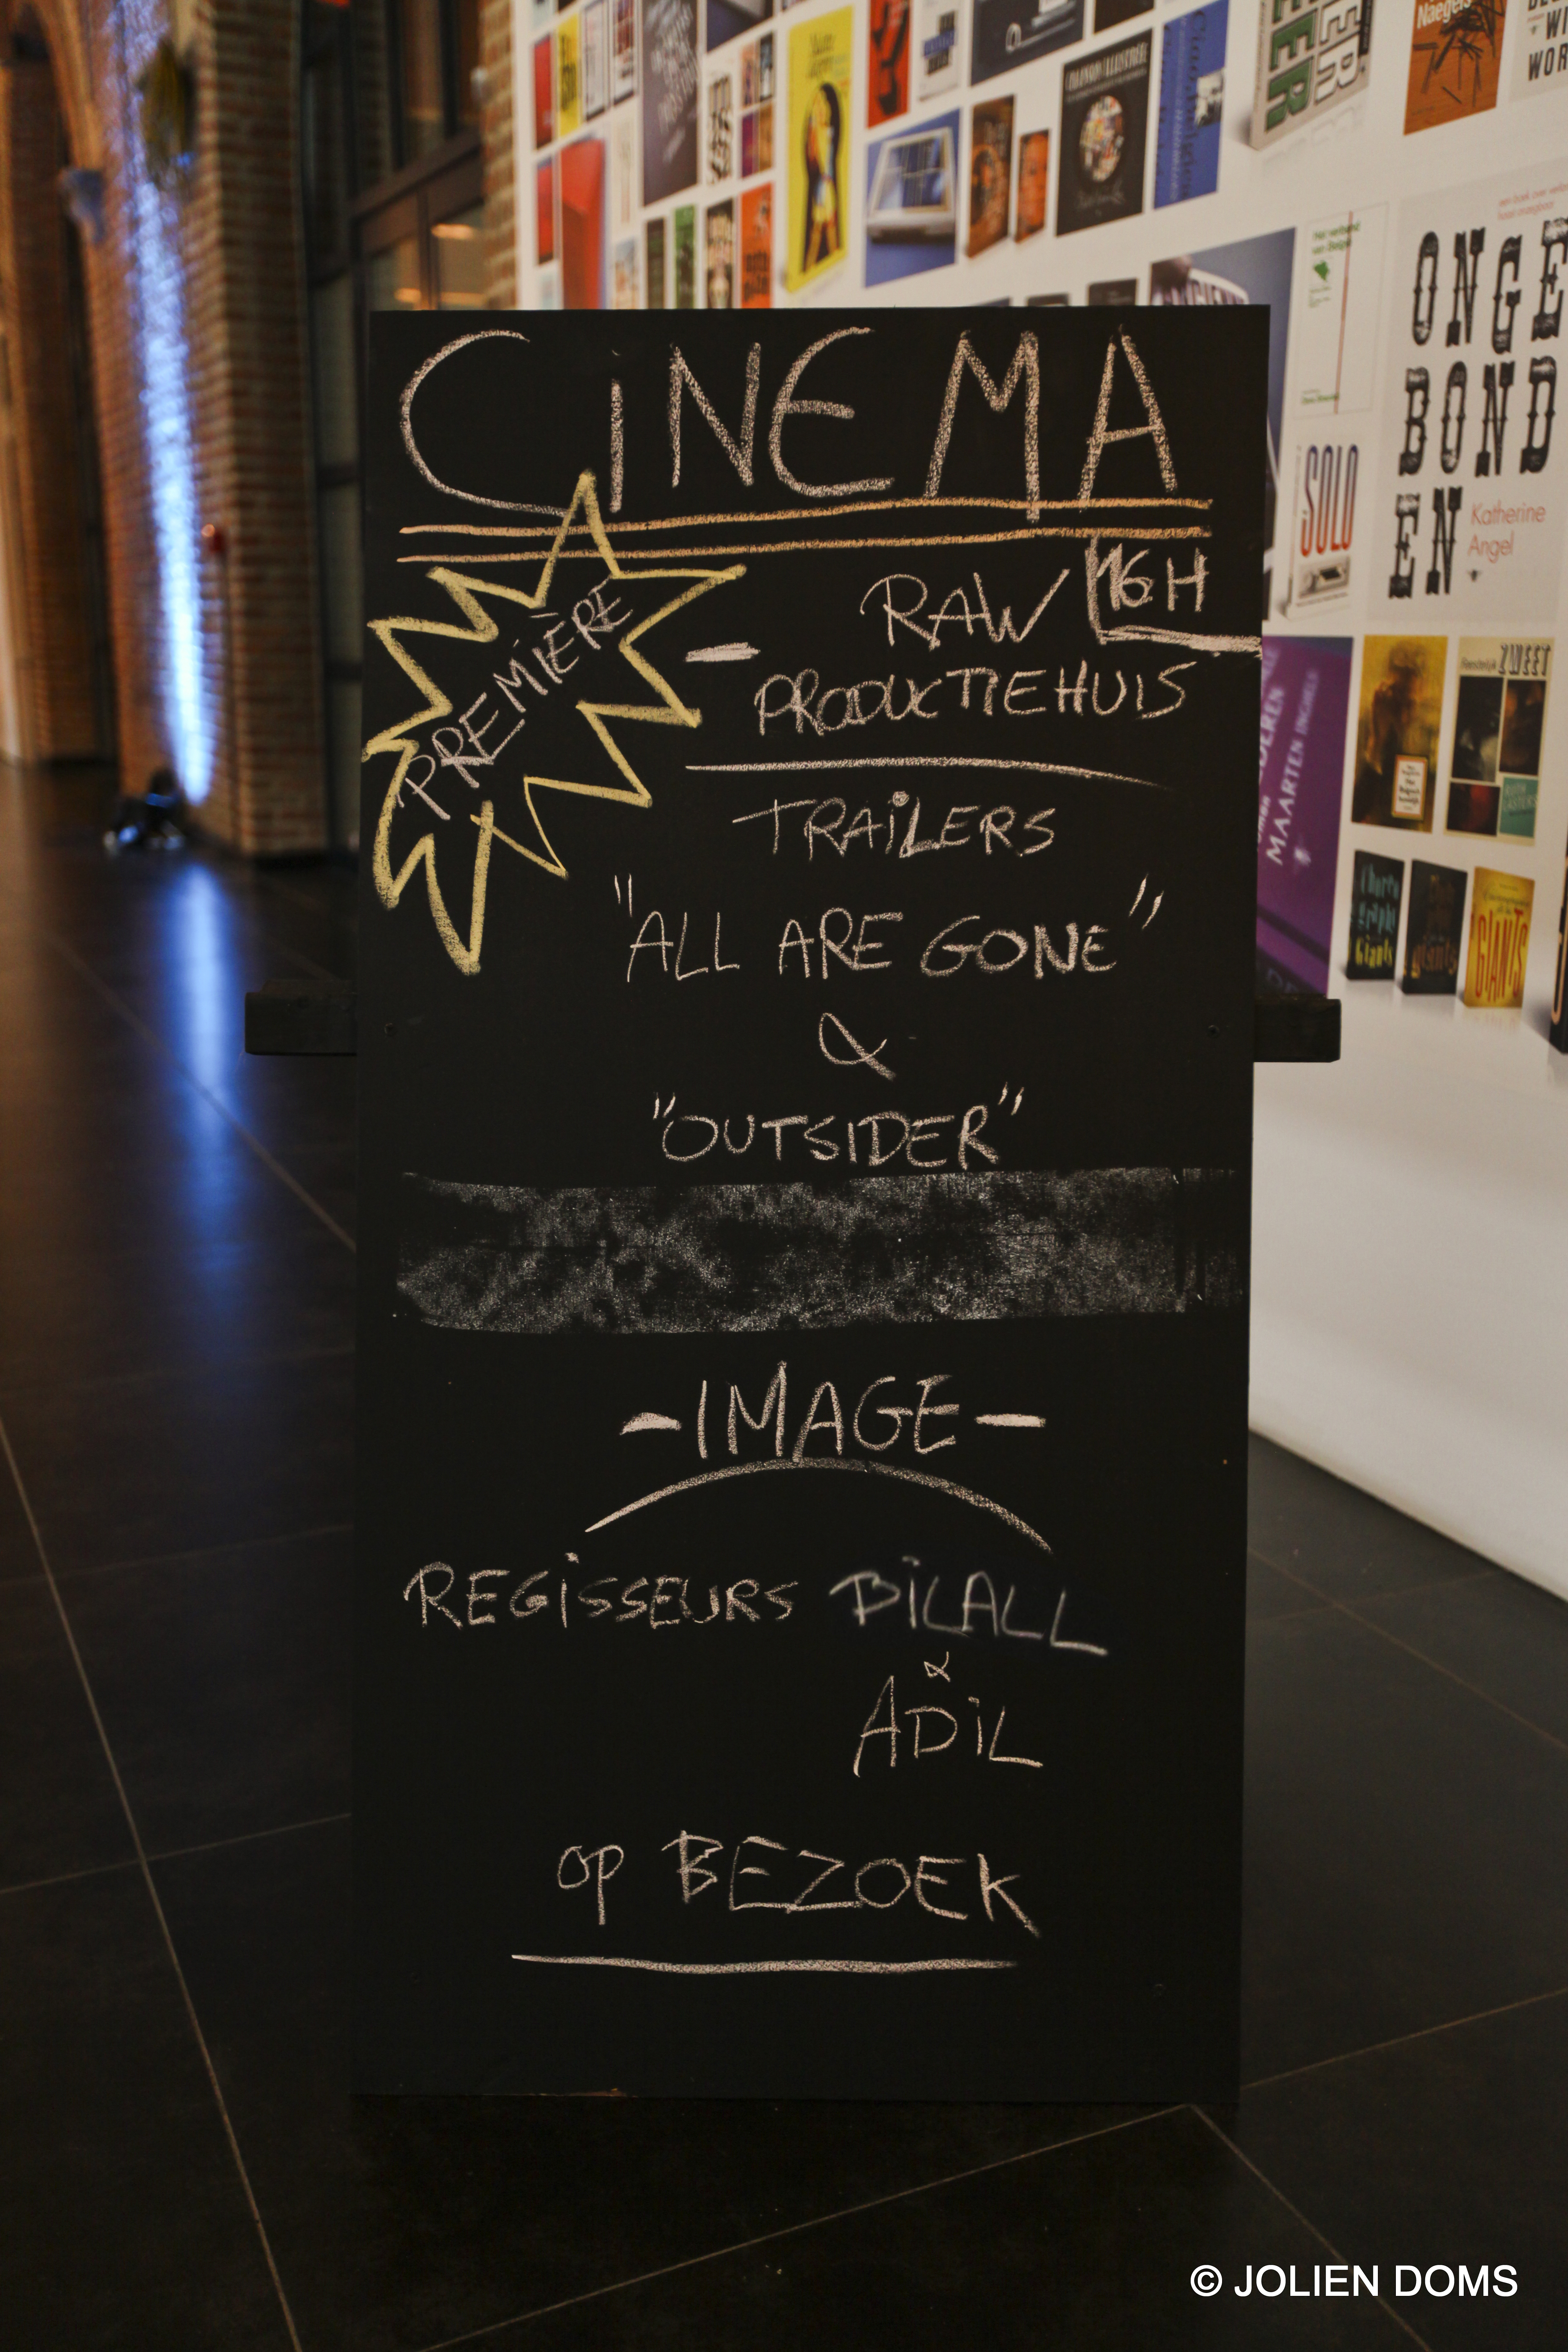 CiNEMA
PREMIÈRE
RAW 16H
- PRODUCTIEHUIS
TRAiLERS
"ALL ARE GONE"
&
"OUTSIDER"
-IMAGE-
REGiSSEURS BiLALL
&
ADiL
OP BEZOEK
Naegels
ONGE
BOND
EN
Katherine
Angel
SOLO
MAARTEN INGHELS
ZWEET
GIANTS
© JOLIEN DOMS